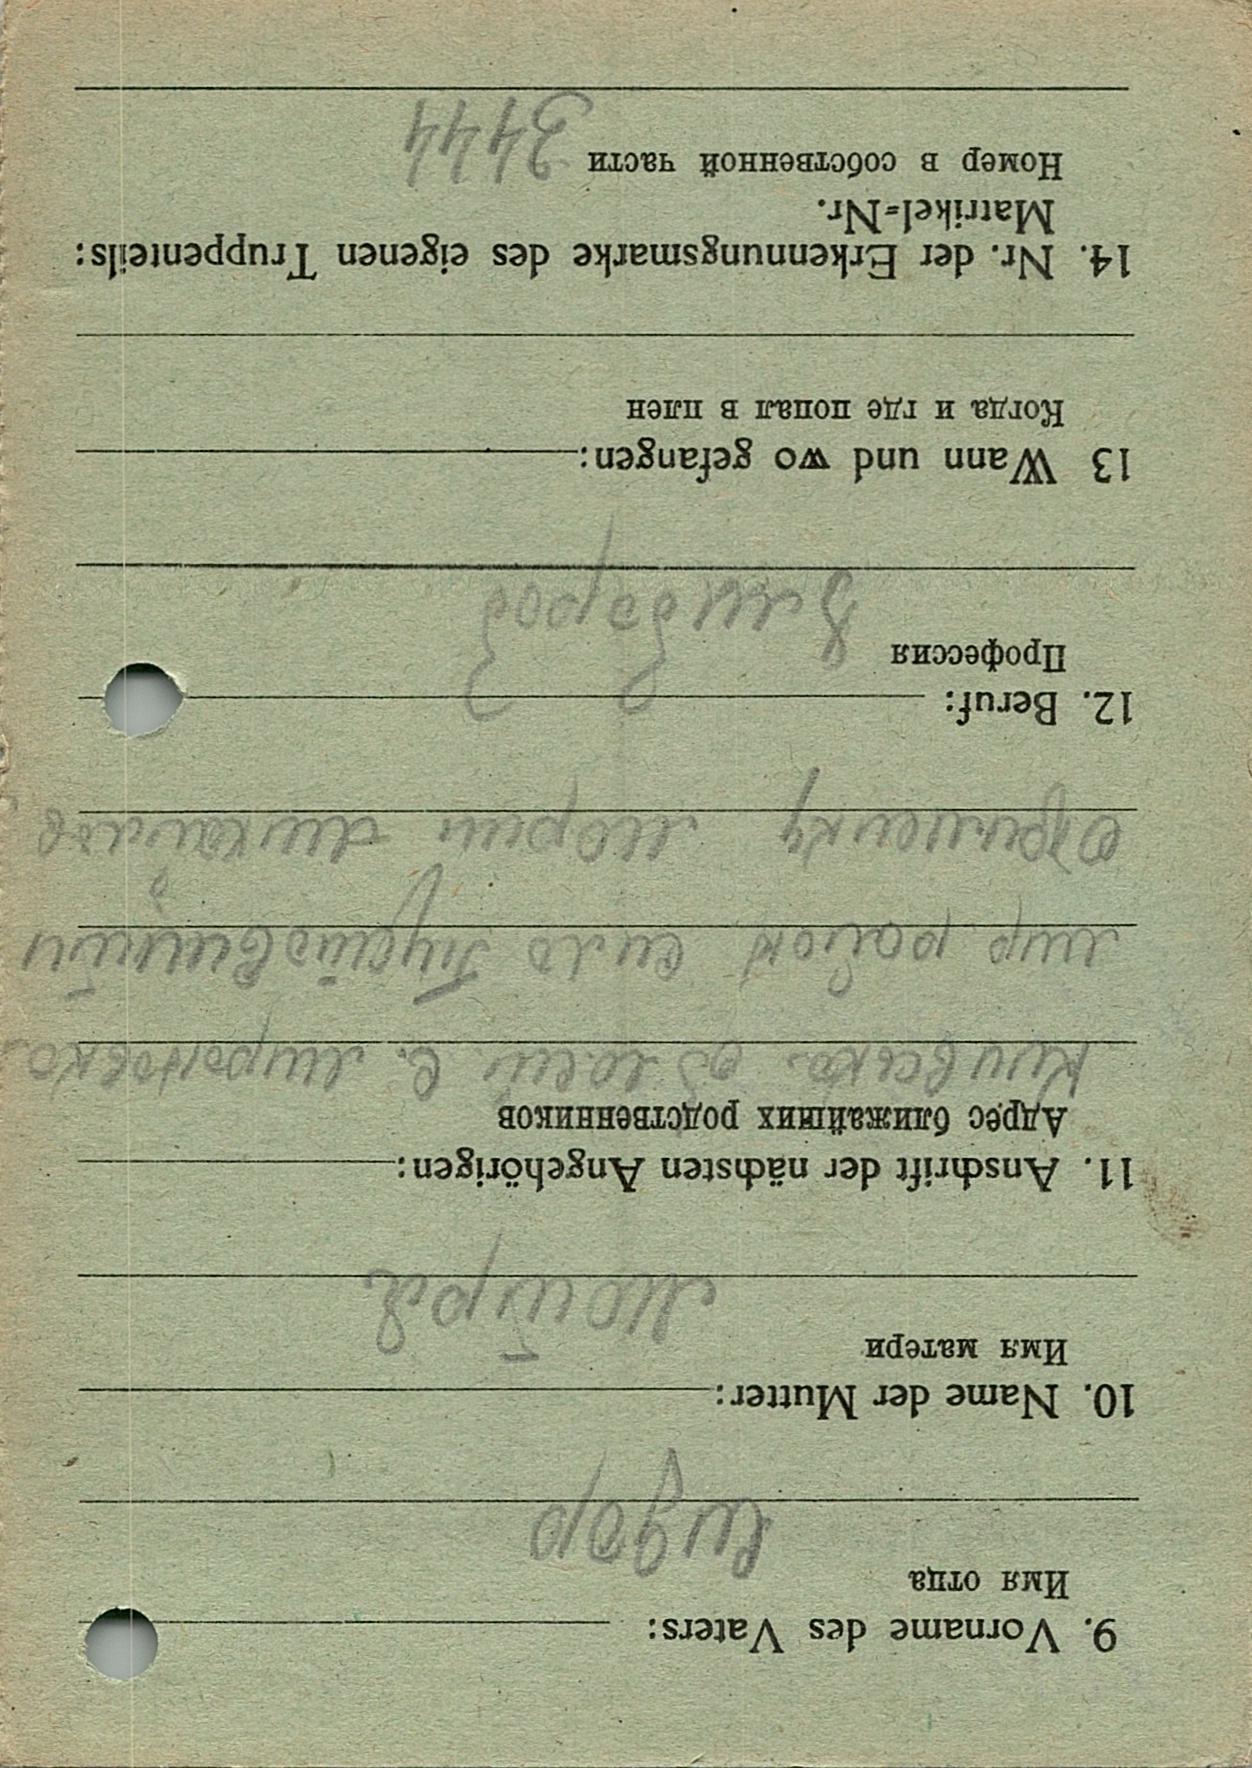 9. Vorname des Vaters:
Имя отца
Сидор
10. Name der Mutter:
Имя матери
11. Anschrift der nächsten Angehörigen:
Адрес ближайших родственников
Киевска облост с. мироновка
мир район село Пустовійти
12. Beruf:
Профессия
Хлибороб
13 Wann und wo gefangen:
Когда и где попал в плен
14. Nr. der Erkennungsmarke des eigenen Truppenteils:
Matrikel=Nr.
Номер в собственной части 3444